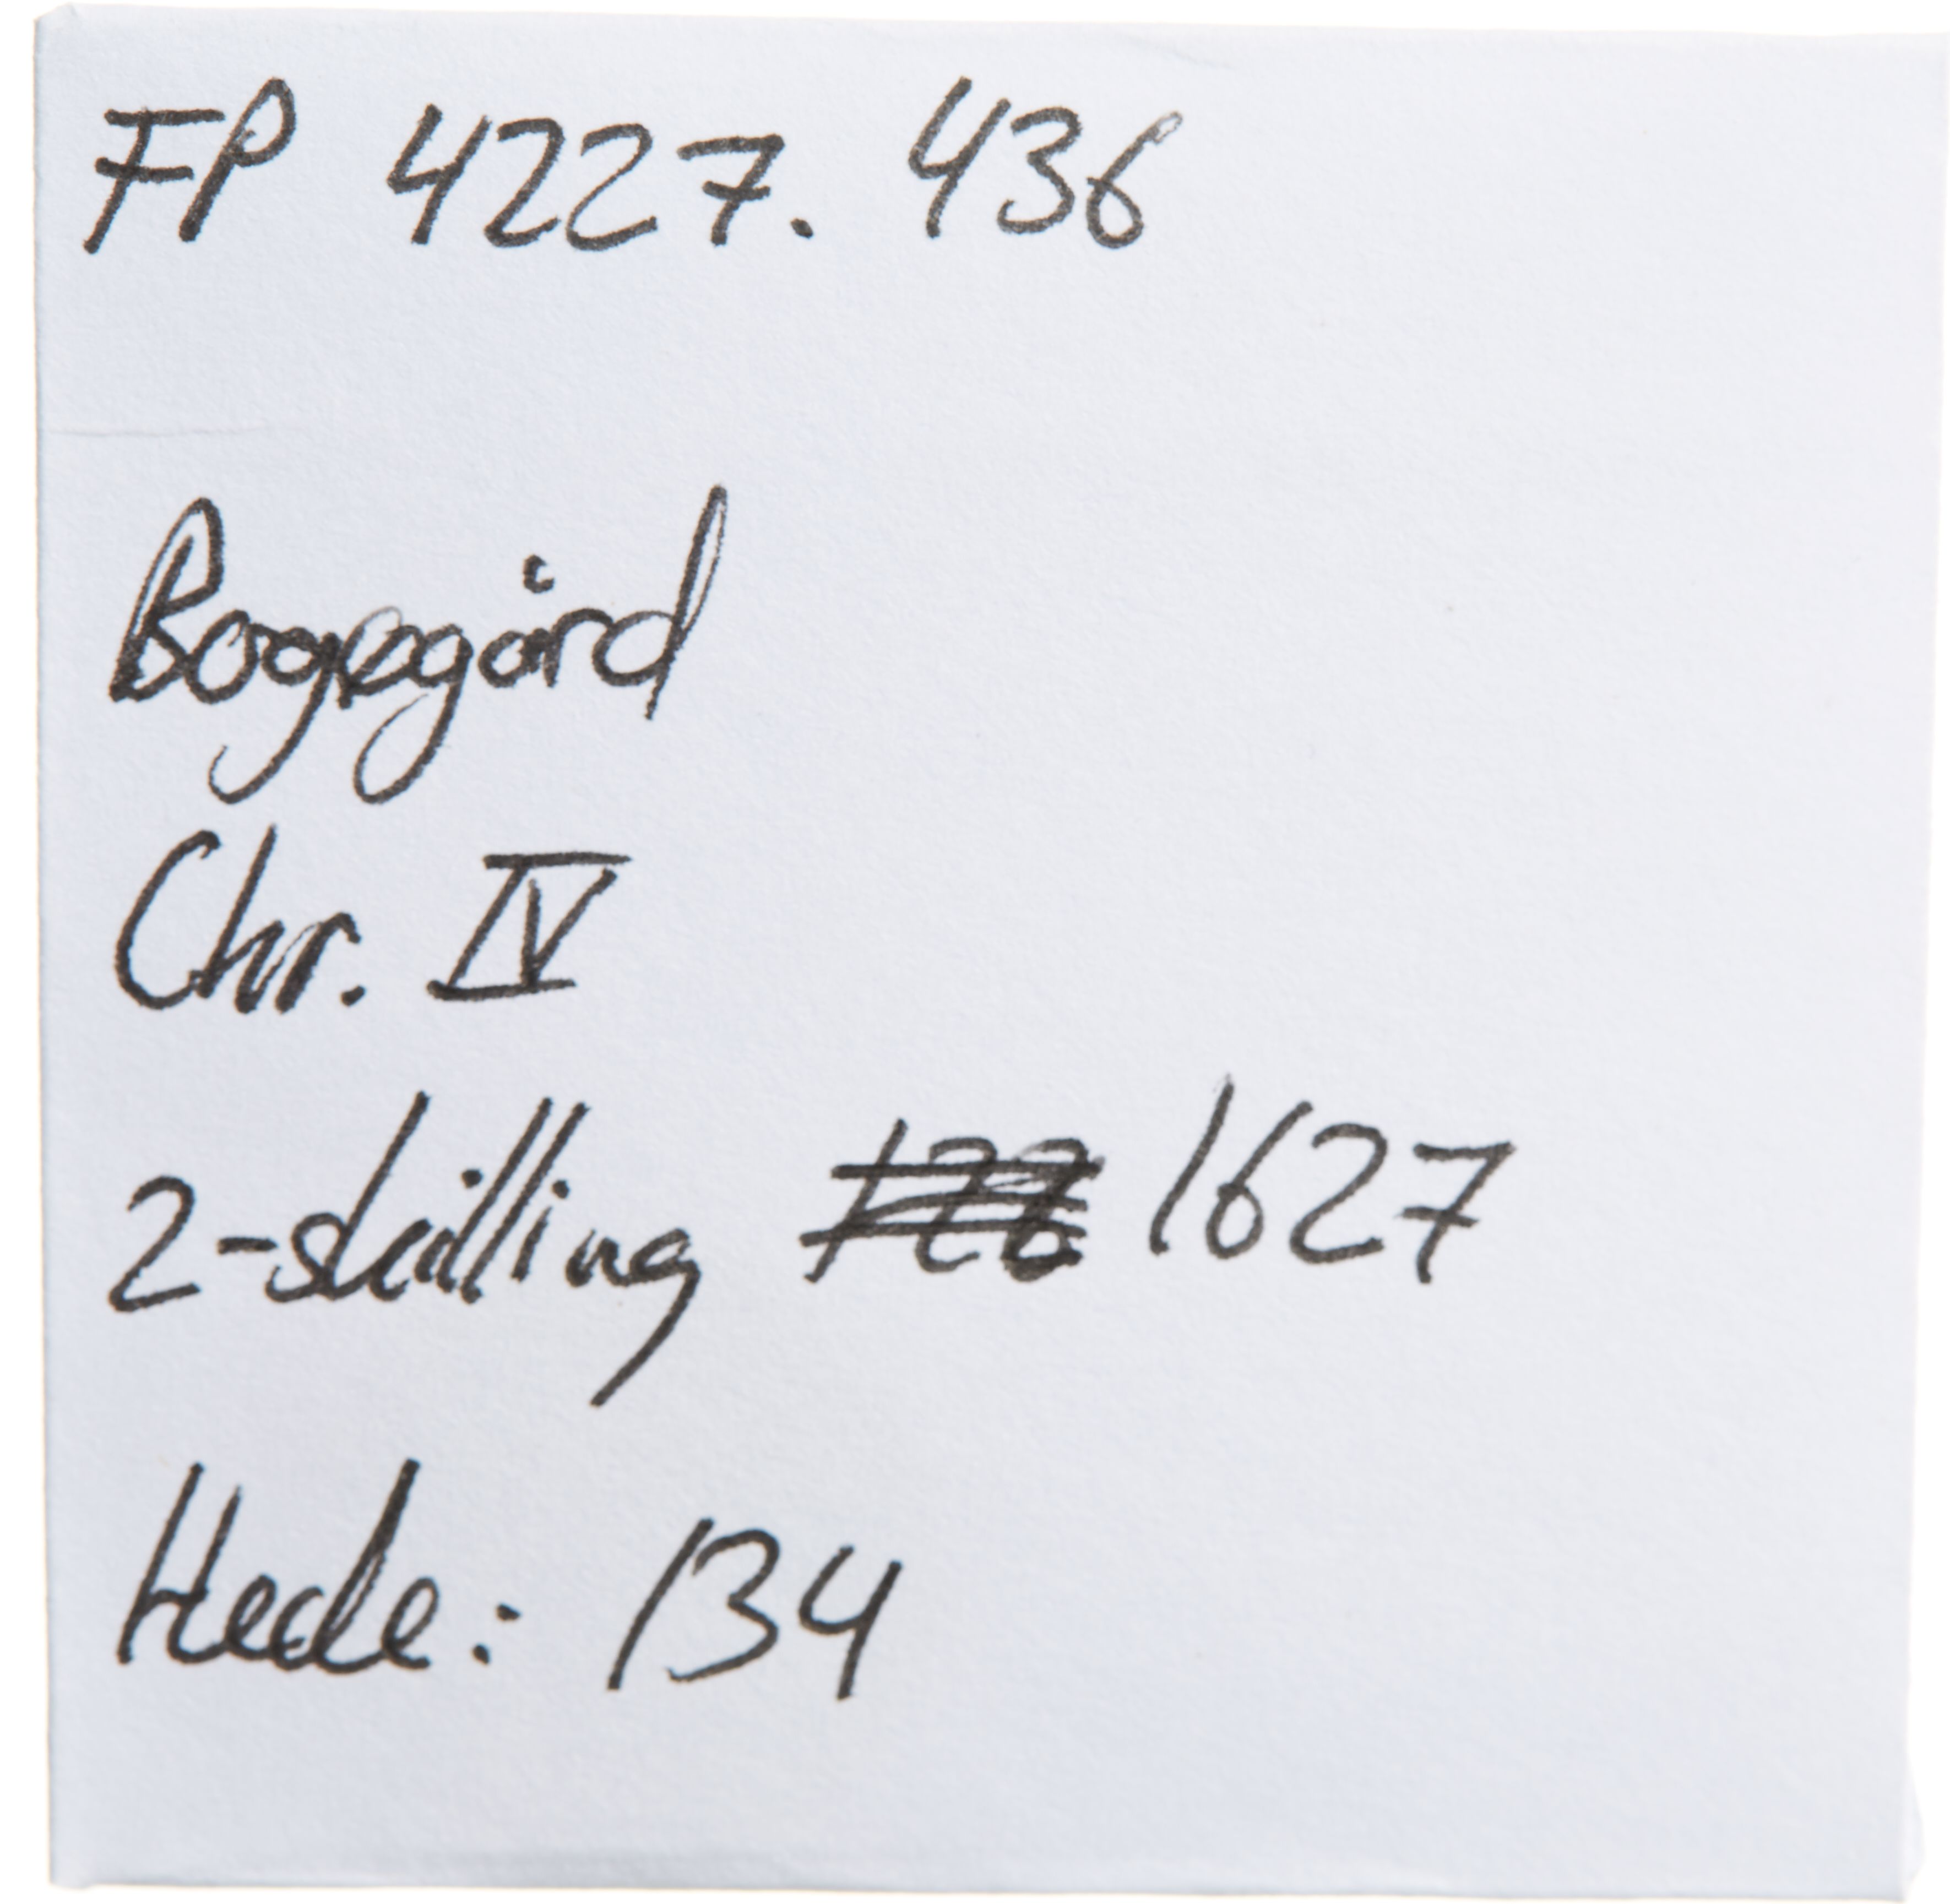 FP 4227. 436
Bogegård
Chr. IV
2-skilling 1627
Hede: 134